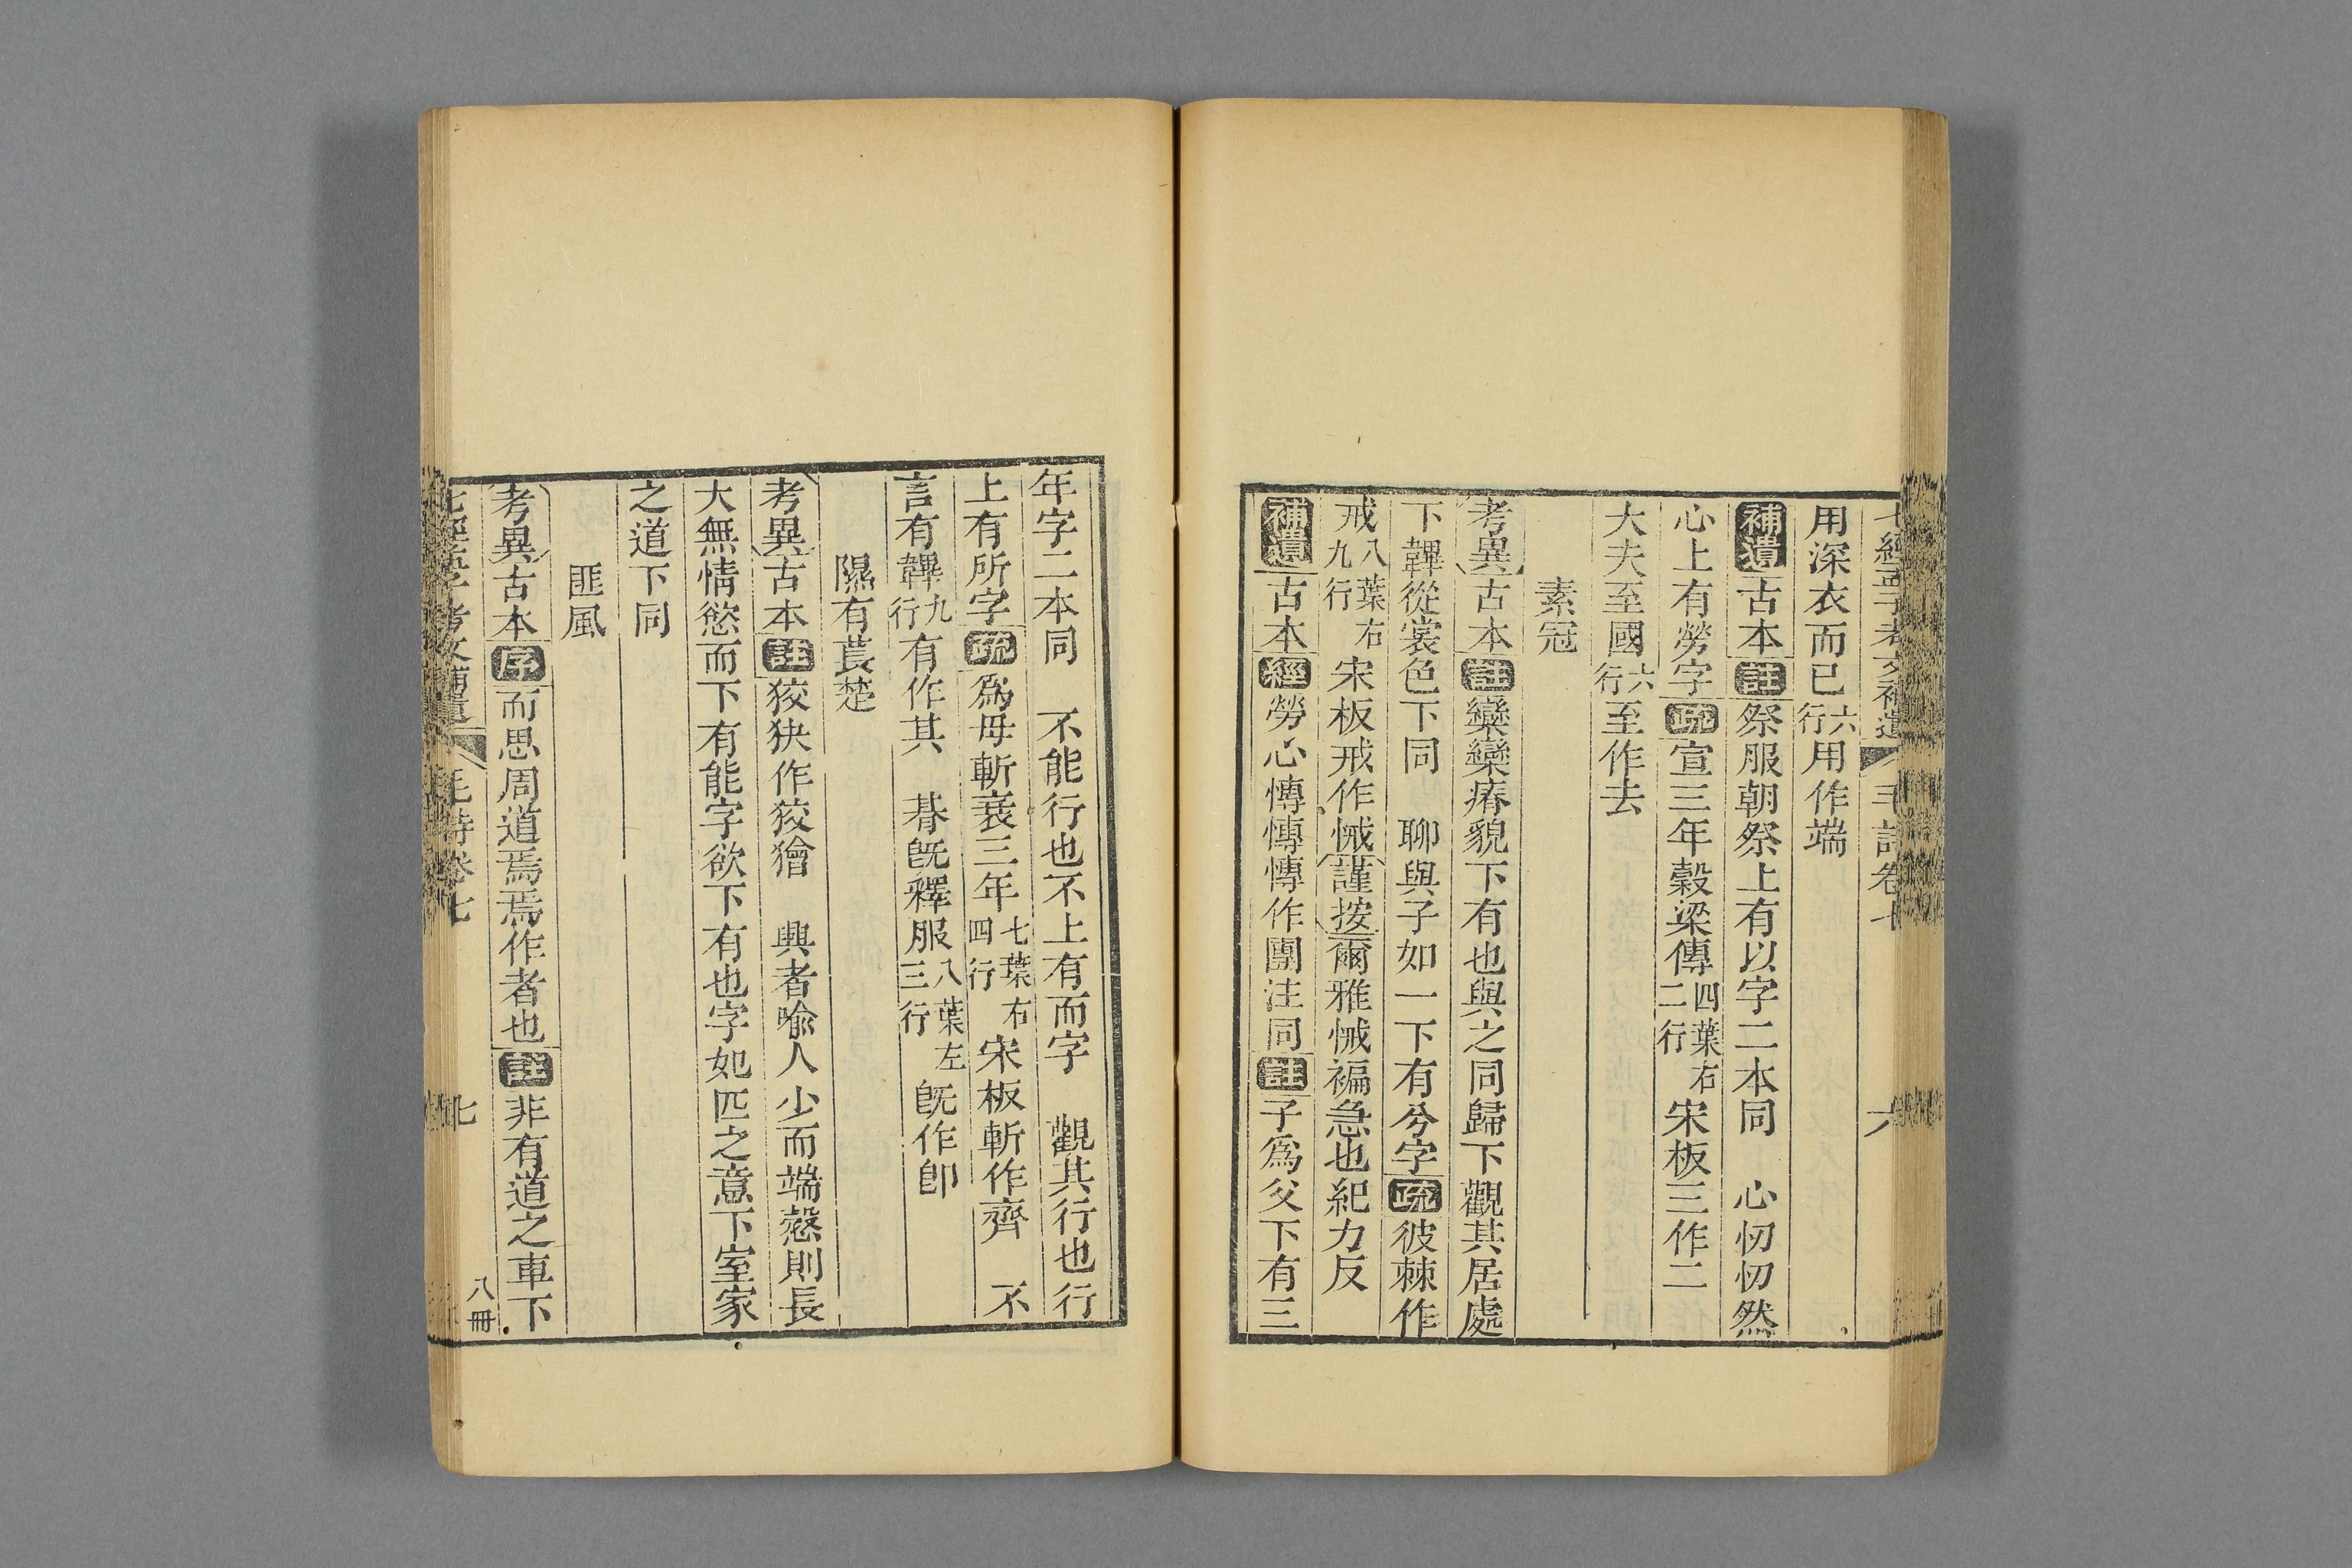 七經孟子考文補遺 毛詩卷七 六
用深衣而已六行用作端
補遺古本註祭服朝祭上有以字二本同 心忉忉然
心上有勞字疏宣三年穀梁傳四葉右二行宋板三作二
大夫至國六行至作去
素冠
考異古本註欒欒瘠貌下有也與之同歸下觀其居處
下韠從裳色下同 聊與子如一下有兮字疏彼棘作
戒八葉右九行宋板戒作悈謹按爾雅悈褊急也紀力反
補遺古本經勞心慱慱慱作團注同註子爲父下有三
年字二本同 不能行也不上有而字 觀其行也行
上有所字疏爲母斬衰三年七葉右四行宋板斬作齊 不
言有韠九行有作其 朞既釋服八葉左三行既作卽
隰有萇楚
考異古本註狡狭作狡獪 興者喩人少而端慤則長
大無情慾而下有能字欲下有也字妃匹之意下室家
之道下同
匪風
考異古本序而思周道焉焉作者也註非有道之車下
七經孟子考文補遺 毛詩卷七 七 八冊